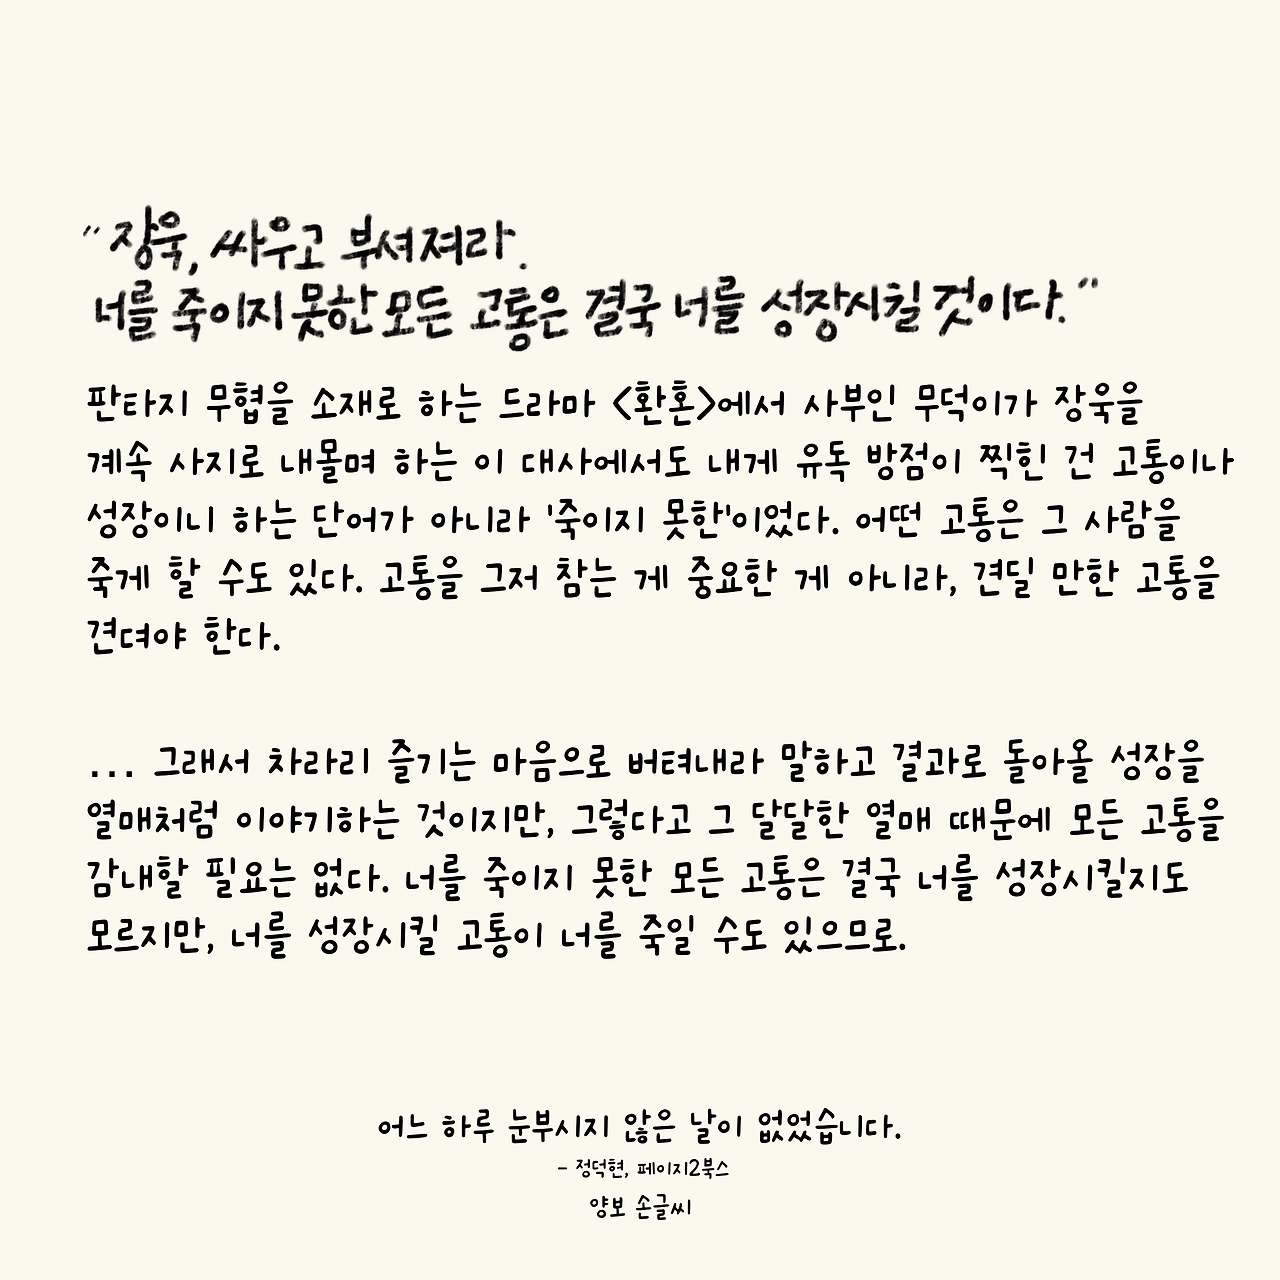 "장욱, 싸우고 부셔져라.
너를 죽이지 못한 모든 고통은 결국 너를 성장시킬 것이다."
판타지 무협을 소재로 하는 드라마 <환혼>에서 사부인 무덕이가 장욱을
계속 사지로 내몰며 하는 이 대사에서도 내게 유독 방점이 찍힌 건 고통이나
성장이니 하는 단어가 아니라 '죽이지 못한'이었다. 어떤 고통은 그 사람을
죽게 할 수도 있다. 고통을 그저 참는 게 중요한 게 아니라, 견딜 만한 고통을
견뎌야 한다.
... 그래서 차라리 즐기는 마음으로 버텨내라 말하고 결과로 돌아올 성장을
열매처럼 이야기하는 것이지만, 그렇다고 그 달달한 열매 때문에 모든 고통을
감내할 필요는 없다. 너를 죽이지 못한 모든 고통은 결국 너를 성장시킬지도
모르지만, 너를 성장시킬 고통이 너를 죽일 수도 있으므로.
어느 하루 눈부시지 않은 날이 없었습니다.
- 정덕현, 페이지2북스
양보 손글씨